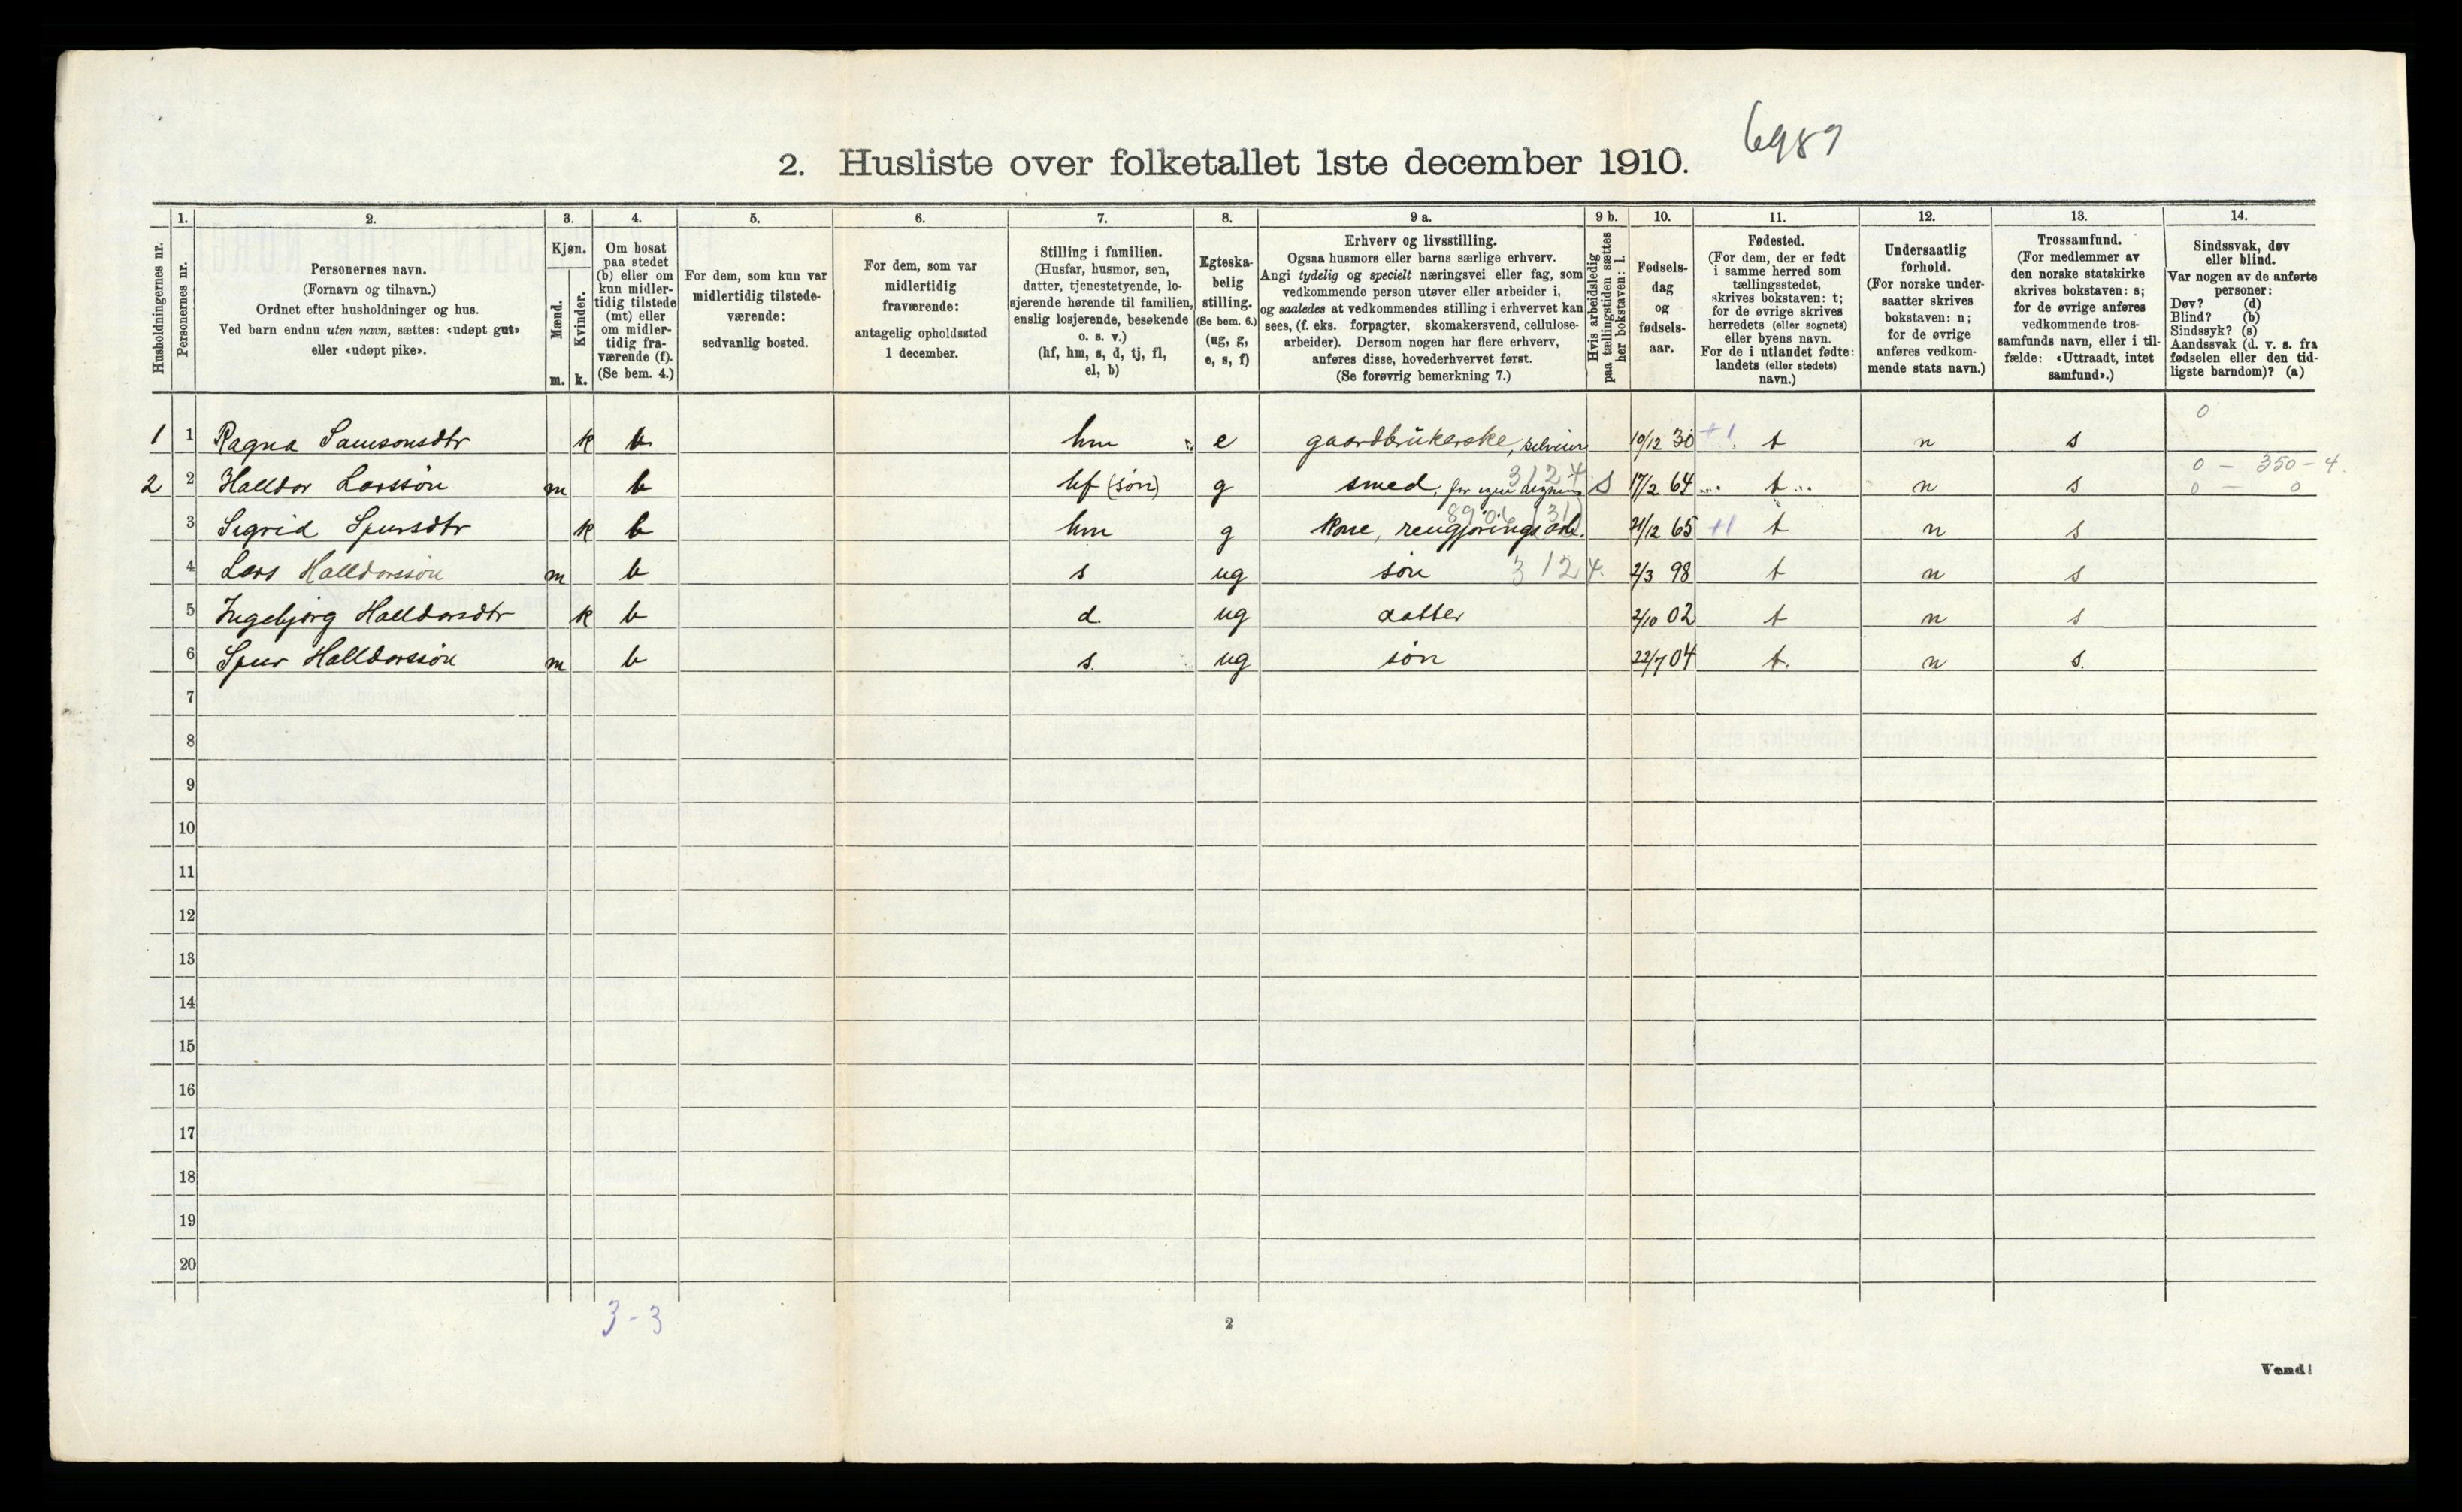 6989
2. Husliste over folketallet 1ste december 1910.
Husholdningernes nr.
1.
Personernes nr.
2.
Personernes navn.
(Fornavn og tilnavn.)
Ordnet efter husholdninger og hus.
Ved barn endnu uten navn, sættes: «udøpt gut»
eller «udøpt pike».
3.
Kjøn.
Mænd.
Kvinder.
m. k.
4.
Om bosat
paa stedet
(b) eller om
kun midler-
tidig tilstede
(mt) eller
om midler-
tidig fra-
værende (f).
(Se bem. 4.)
5.
For dem, som kun var
midlertidig tilstede-
værende:
sedvanlig bosted.
6.
For dem, som var
midlertidig
fraværende:
antagelig opholdssted
1 december.
7.
Stilling i familien.
(Husfar, husmor, søn,
datter, tjenestetyende, lo-
sjerende hørende til familien,
enslig losjerende, besøkende
o. s. v.)
(hf, hm, s, d, tj, fl,
el, b)
8.
Egteska-
belig
stilling.
(Se bem. 6.)
(ug, g,
e, s, f)
9 a.
Erhverv og livsstilling.
Ogsaa husmors eller barns særlige erhverv.
Angi tydelig og specielt næringsvei eller fag, som
vedkommende person utøver eller arbeider i,
og saaledes at vedkommendes stilling i erhvervet kan
sees, (f. eks. forpagter, skomakersvend, cellulose-
arbeider). Dersom nogen har flere erhverv,
anføres disse, hovederhvervet først.
(Se forøvrig bemerkning 7.)
9 b.
Hvis arbeidsledig
paa tællingstiden sættes
her bokstaven: l.
10.
Fødsels-
dag
og
fødsels-
aar.
11.
Fødested.
(For dem, der er født
i samme herred som
tællingsstedet,
skrives bokstaven: t;
for de øvrige skrives
herredets (eller sognets)
eller byens navn.
For de i utlandet fødte:
landets (eller stedets)
navn.)
12.
Undersaatlig
forhold.
(For norske under-
saatter skrives
bokstaven: n;
for de øvrige
anføres vedkom-
mende stats navn.)
13.
Trossamfund.
(For medlemmer av
den norske statskirke
skrives bokstaven: s;
for de øvrige anføres
vedkommende tros-
samfunds navn, eller i til-
fælde: «Uttraadt, intet
samfund».)
14.
Sindssvak, døv
eller blind.
Var nogen av de anførte
personer:
Døv? (d)
Blind? (b)
Sindssyk? (s)
Aandssvak (d. v. s. fra
fødselen eller den tid-
ligste barndom)? (a)
0
1 1 Ragna Samsonsdtr k b hm e gaardbrukerske, selveier 10/12 30 +1 t n s
0 - 350 - 4.
2 2 Halldor Larssøn m b hf (søn) g smed, for egen regning 3124 S 17/2 64 t n s 0 - 0
3 Sigrid Spursdtr k b hm g kone, rengjørings arb. 8906 (31) 21/12 65 +1 t n s
4 Lars Halldorssøn m b s ug søn 3124. 2/3 98 t n s
5 Ingebjørg Halldorsdtr k b d ug datter 2/10 02 t n s
6 Spur Halldorssøn m b s. ug søn 22/7 04 t. n s.
7
8
9
10
11
12
13
14
15
16
17
18
19
20
3 - 3
2
Vend!